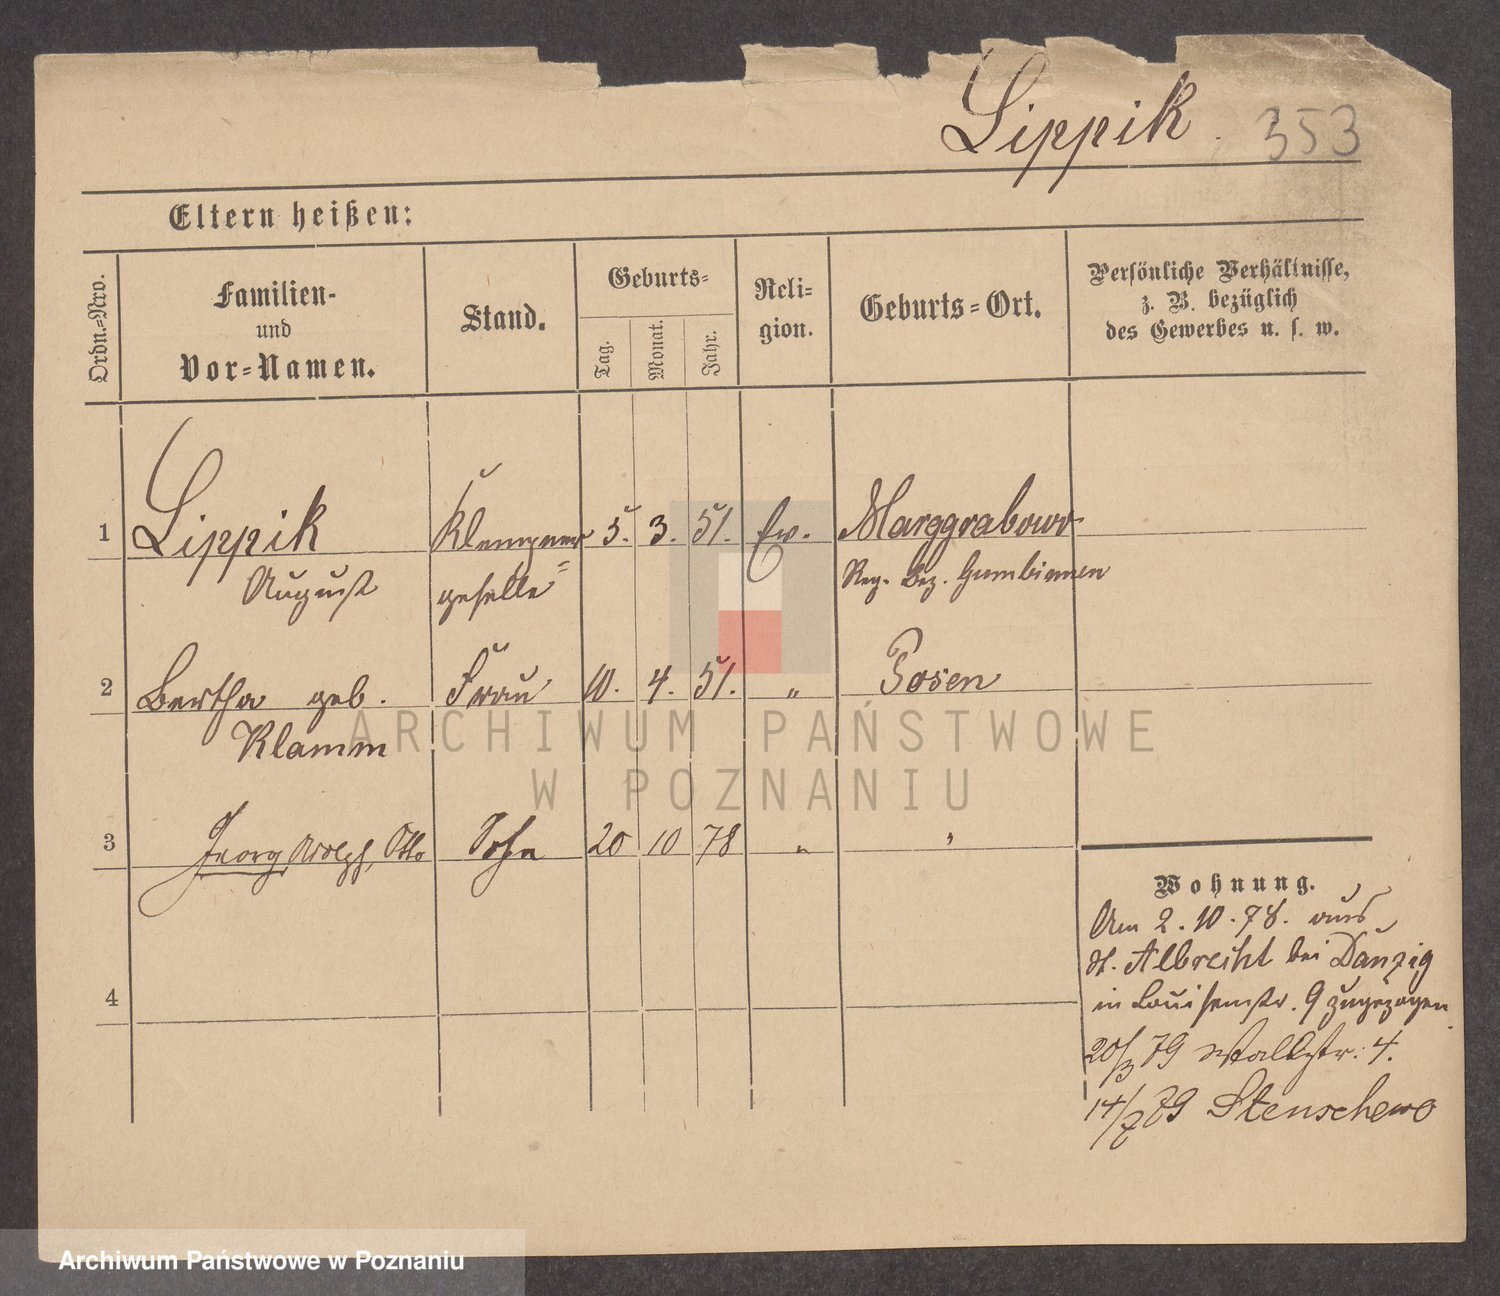 Lippik. 353
Eltern heißen:
Ordn.-Nro.
Familien-
und
Vor-Namen.
Stand.
Geburts-
Tag.
Monat.
Jahr.
Reli-
gion.
Geburts-Ort.
Persönliche Verhältnisse,
z. B. bezüglich
des Gewerbes u. s. w.
1 Lippik Klempner 5. 3. 51. Ev. Marggrabowo
August geselle Reg. Bez. Gumbinnen
2 Bertha geb. Frau 10. 4. 51. " Posen
Klamm
3 Georg, Adolph, Otto Sohn 20 10 78 " "
4
Wohnung.
Am 2. 10. 78. aus
St. Albrecht bei Danzig
in Louisenstr. 9 zugezogen.
20/3 79 Wallstr. 4.
14/7 79 Stenschewo
ARCHIWUM PAŃSTWOWE
W POZNANIU
Archiwum Państwowe w Poznaniu